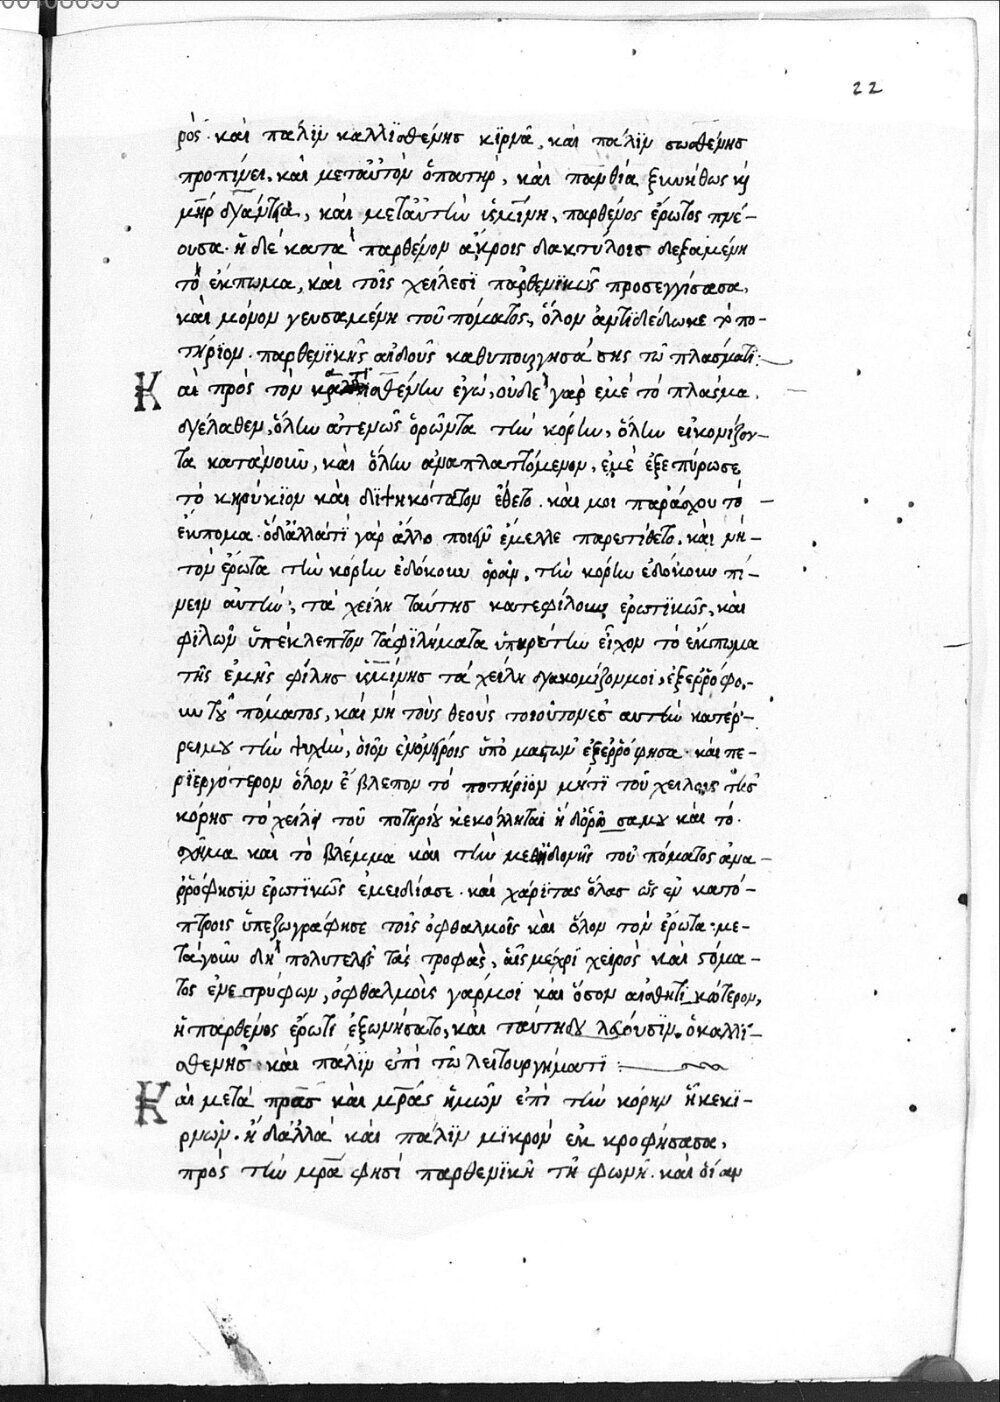 22
ρός· και πάλιν καλλισθένης κιρνᾶ, και πάλιν σωσθένης
προπίνει, και μετ αὐτὸν ὁ πατὴρ, και πανθία ξυνήθως ἡ
μηρ και μετ αὐτὴν ὑσμίνη, παρθένος ἔρωτος πνέ-
ουσα· ἡ δὲ κατα παρθένον ἄκροις δακτύλοις δεξαμένη
τὸ ἔκπωμα, και τοῖς χείλεσι παρθενικῶς προσεγγίσασα,
και μόνον γευσαμένη τοῦ πόματος, ὅλον ἀντιδέδωκε τὸ πο-
τήριον· παρθενικῆς αἰδοῦς καθυπουργησάσης τῶ πλάσματι:
Και πρὸς τὸν ἐγώ, οὐδὲ γὰρ ἐμὲ τὸ πλάσμα
διέλαθεν, ὅλην ἀτενῶς ὁρῶντα τὴν κόρην, ὅλην εἰκονίζον-
τα κατὰ νοῦν, και ὅλην ἀναπλαττόμενον, ἐμὲ ἐξεπύρωσε
τὸ κηρύκιον και διψηκότατον ἔθετο· και μοι παράσχου τὸ
ἔκπομα· ὁ δ ἀλλά τι γὰρ ἄλλο ποιεῖν ἔμελλε παρετίθετο. και νὴ
τὸν ἔρωτα τὴν κόρην ἐδόκουν ὁρᾶν, τὴν κόρην ἐδόκουν πί-
νειν αὐτήν, τὰ χείλη ταύτης κατεφίλουν ἐρωτικῶς, και
φιλῶν ὑπέκλεπτον τὰ φιλήματα ὑπηρέτην εἶχον τὸ ἔκπωμα
τῆς ἐμῆς φίλης ὑσμίνης τὰ χείλη διακομίζον μοι, ἐξερρόφο-
υν τοῦ πόματος, και νὴ τοὺς θεοὺς αὐτὴν κατέρ-
ρειν μου τὴν ψυχήν, οἷον ἐν ὀνείροις ὑπὸ μαστῶν ἐξερρόφησα· και πε-
ριεργότερον ὅλον ἔβλεπον τὸ ποτήριον μή τι τοῦ χείλους τῆς
κόρης τὸ χείλη τοῦ ποτηρίου κεκόλληται ἡ δ ὁρῶσα μου και τὸ
σχῆμα και τὸ βλέμμα και τὴν μεθ ἡδονῆς τοῦ πόματος ἀνα-
ρρόφησιν ἐρωτικῶς ἐμειδίασε· και χάριτας ὅλας ὡς ἐν κατό-
πτροις ὑπεζωγράφησε τοῖς ὀφθαλμοῖς και ὅλον τὸν ἔρωτα· με-
τὰ γοῦν δὴ πολυτελεῖς τὰς τροφὰς, αἷς μέχρι χειρὸς και στόμα-
τος ἐνετρύφων, ὀφθαλμοὶς γάρ μοι και ὅσον αἰσθητικώτερον,
ἡ παρθένος ἔρωτι ἐξωμήσατο, και ταύτης οὐ λαοῦσιν. ὁ καλλι-
σθένης· και πάλιν ἐπὶ τῶ λειτουργήματι:
Και μετὰ πρας και μρας ἡμῶν ἐπὶ τὴν κόρην ἧκε κι-
ρνῶν· ἡ δ ἀλλὰ και πάλιν μικρὸν ἐκροφήσασα,
πρὸς τὴν μρα φησὶ παρθενικῆ τῆ φωνῆ· και διαν